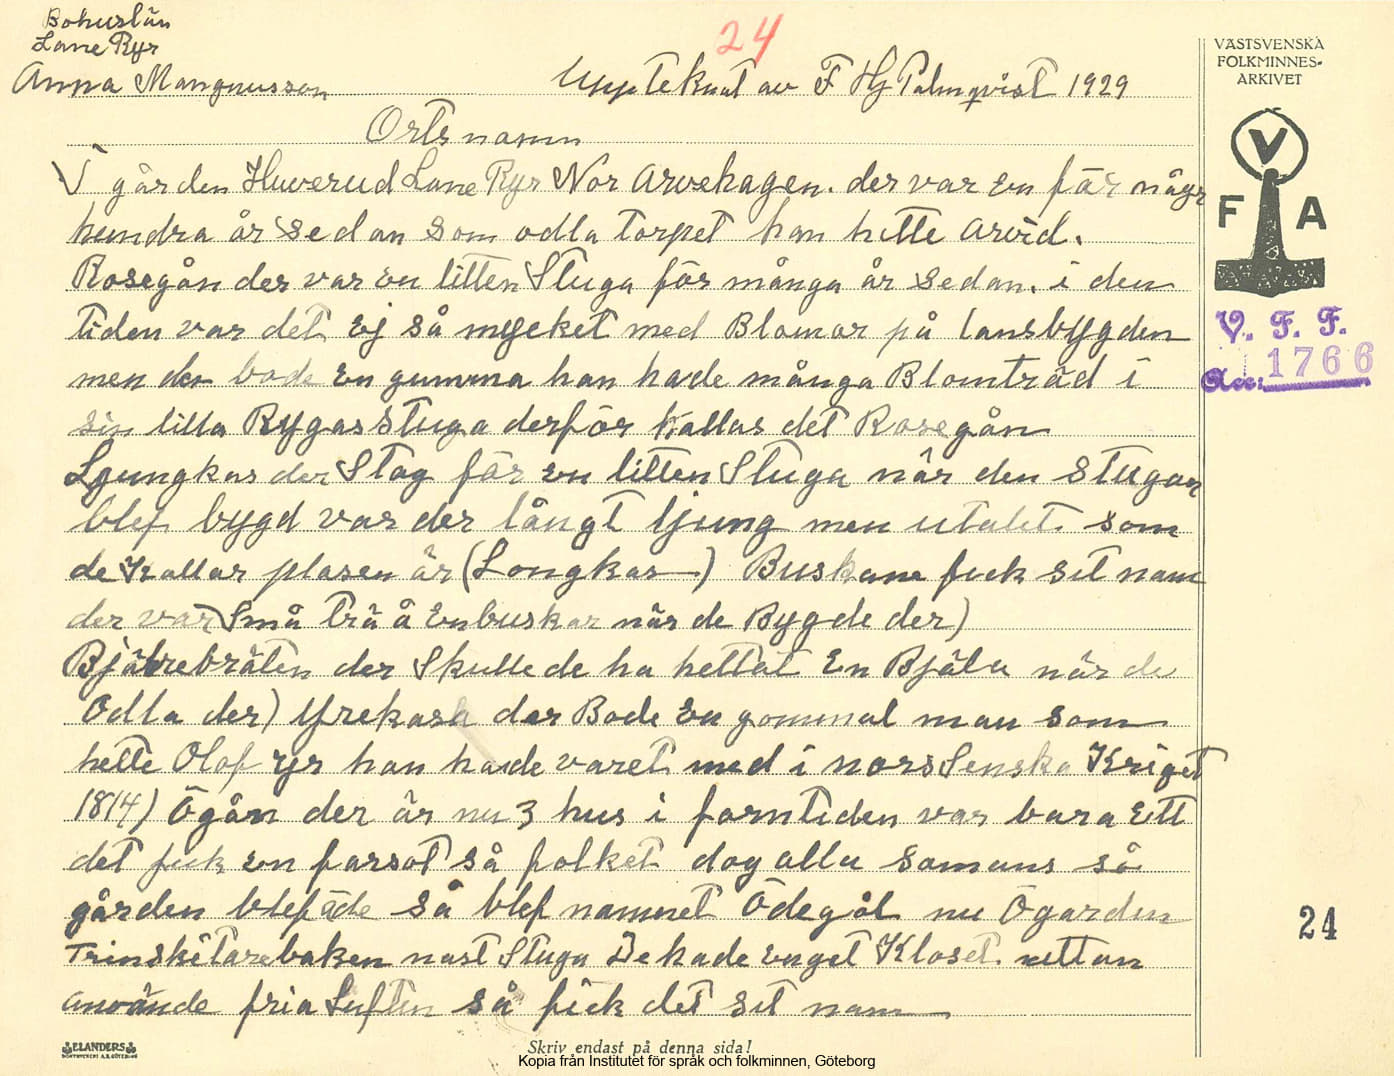 Bohuslän
Lane Ryr
Anna Mangnusson
24
Uppteknat av F Hj Palmqvist 1929
VÄSTSVENSKA
FOLKMINNES-
ARKIVET
V
F A
V. F. F.
Acc: 1766
Ortsnamn
I gården Huverud Lane Ryr Nor Arvehagen. der var en får någr
hundra år sedan som odla torpet han hette Arvid.
Rosegån der var en litten Stuga för många år sedan. i den
tiden var det Ej så mycket med Blomor på lansbygden
men der bode En gumma han hade många Blomträd i
sin lilla Rygasstuga derför kallas det Rosegån
Ljungkas der Stog får en litten Stuga når den stugan
blef bygd var der långt ljung men utalet som
de Kallar plasen är (Longkas) Buskane fick sit nam
der var Små trä å Enbuskar når de Bygde der)
Bjälrebråten der Skulle de ha hettat En Bjäla når de
Odla der) Yrekash der Bode En gommal man som
hette Olof yr han hade varet med i norsSenska Kriget
1814) Ögån der är nu 3 hus i forntiden var bara Ett
det fick en farsot så folket dog alla Samans så
gården blef öde så blef namnet Ödegål nu Ögarden
Trinskitarebaken nast Stuga De hade enget Kloset uttan
använde fria Luften så fick det sit nam
24
ELANDERS
BOKTRYCKERI A.B. GÖTEBORG
Skriv endast på denna sida!
Kopia från Institutet för språk och folkminnen, Göteborg